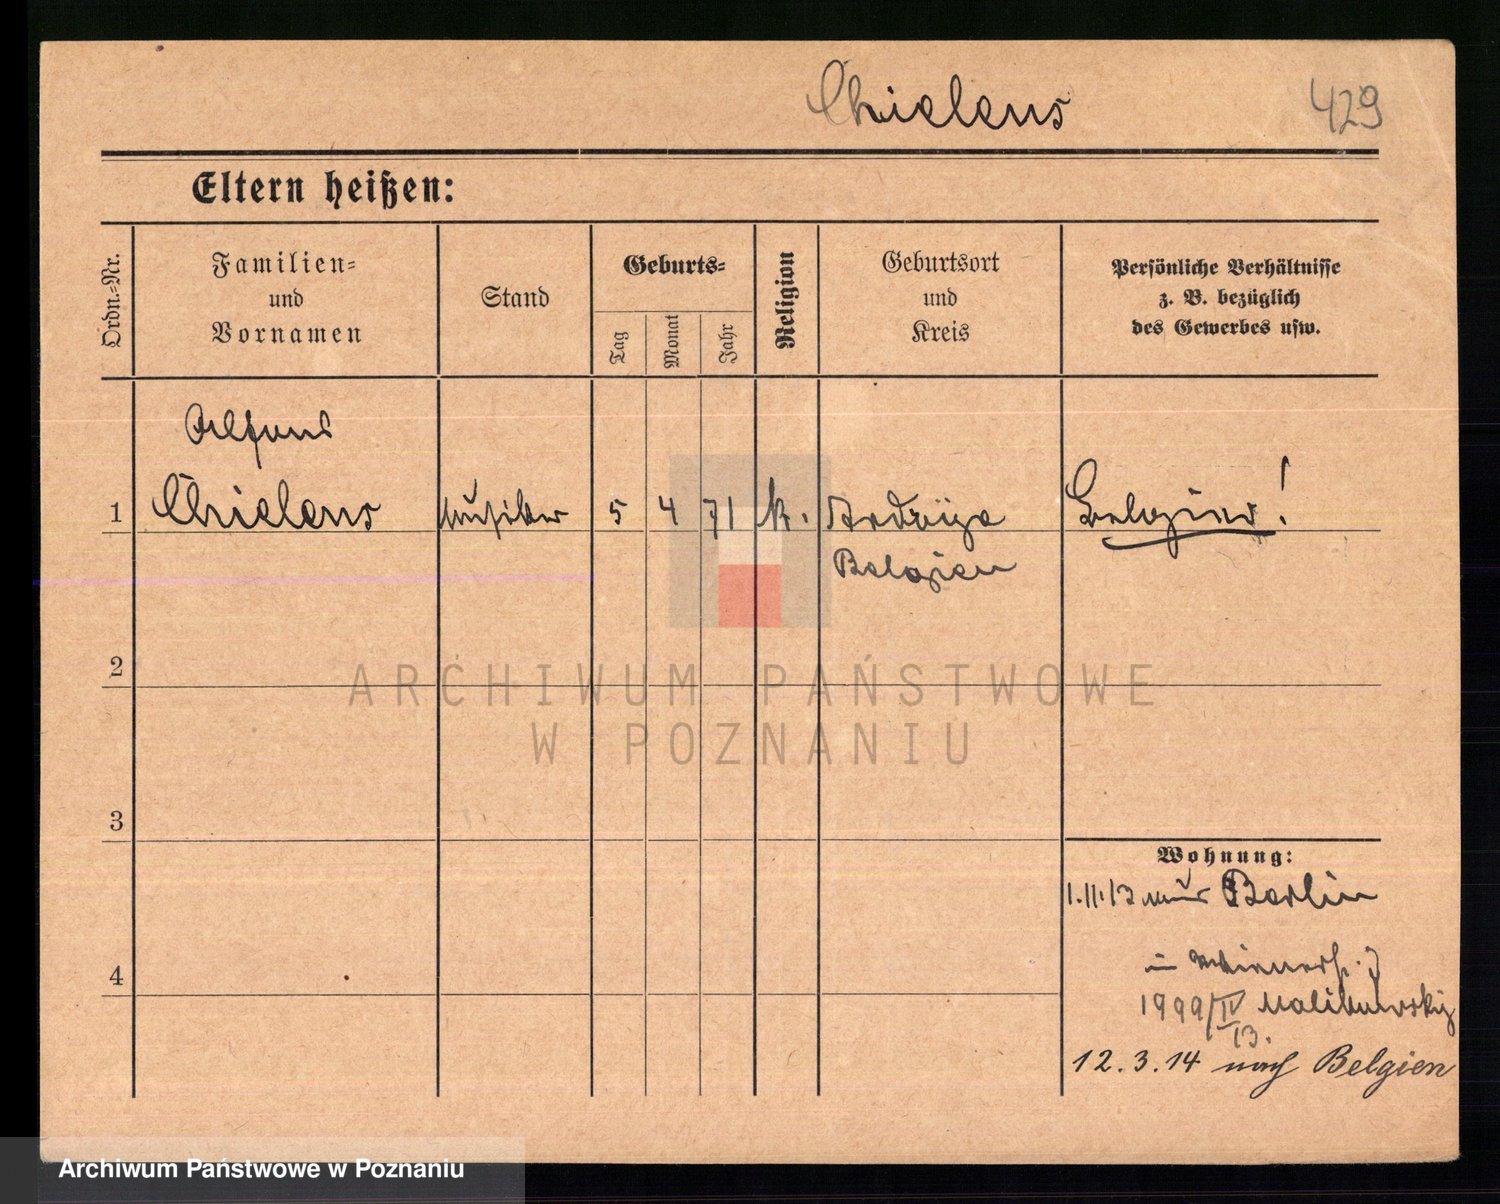 Chielens 429
Eltern heißen:
Ordn.-Nr.
Familien-
und
Vornamen
Stand
Geburts-
Tag
Monat
Jahr
Religion
Geburtsort
und
Kreis
Persönliche Verhältnisse
z. B. bezüglich
des Gewerbes usw.
Alfons
1 Chielens Musiker 5 4 71 k. Belgier!
Belgien
2
ARCHIWUM PAŃSTWOWE
W POZNANIU
3
Wohnung:
1.11.13 aus Berlin
4
1999/IV
13.
12.3.14 nach Belgien
Archiwum Państwowe w Poznaniu